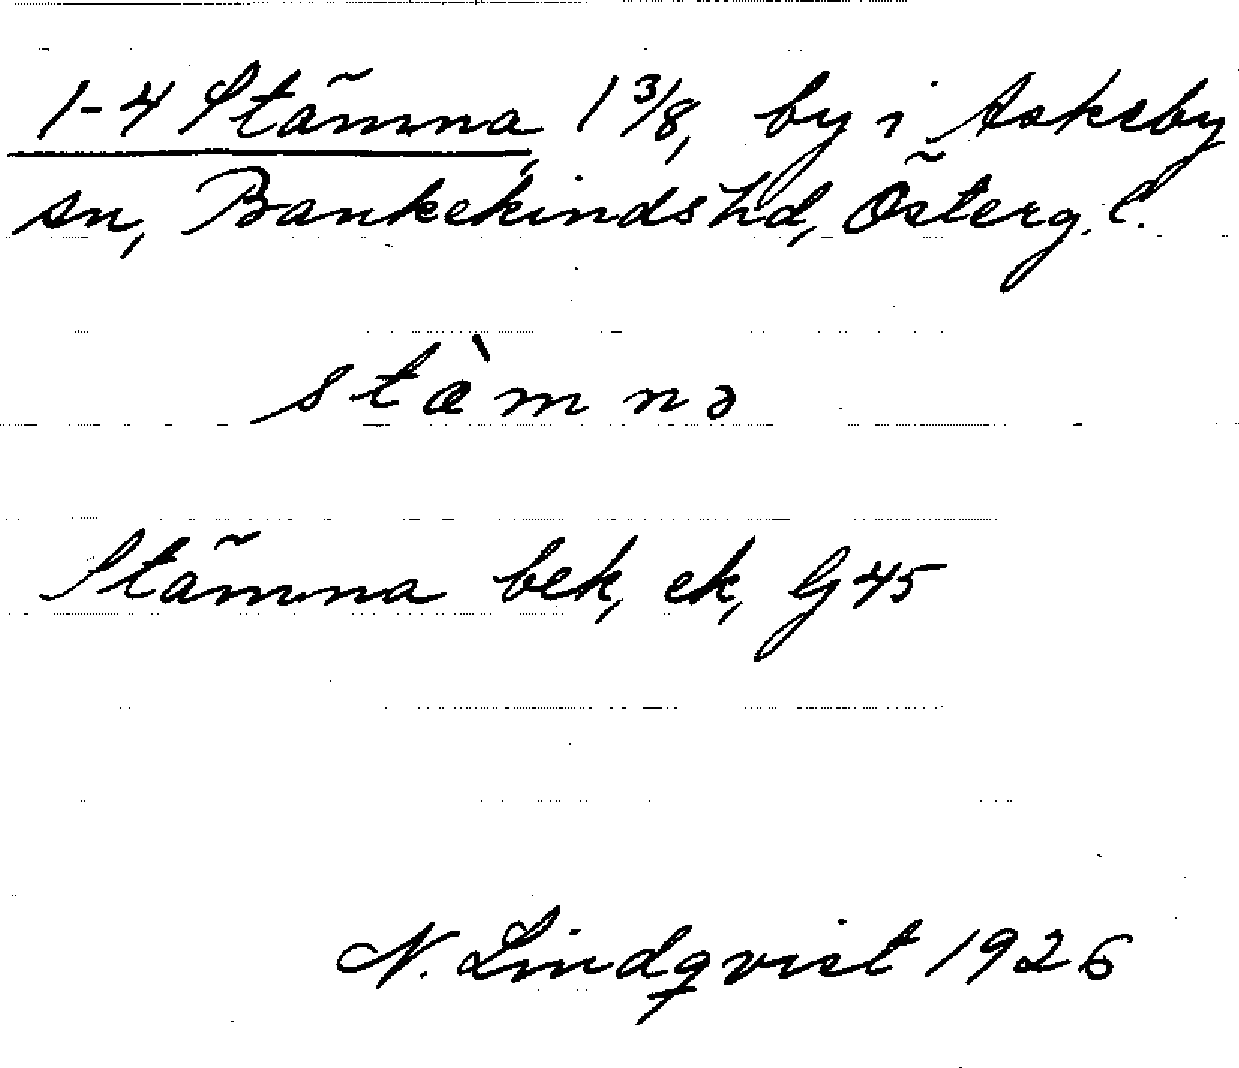 1-4 Stämna, 1 3/8, by i Askeby
sn, Bankekinds hd, Österg. l.
stæ̀mnə
Stämna bek, ek, G 45
N. Lindqvist 1926